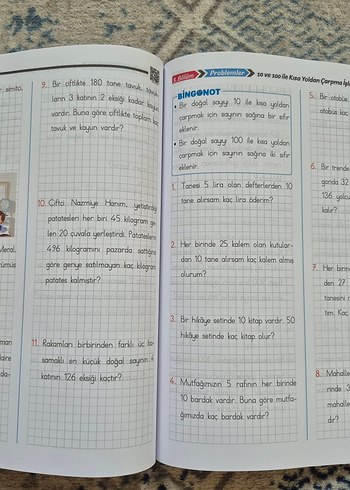 simita,
Meral,
gümüş
man
laire
da-
9. Bir çiftlikte 180 tane tavuk, tavuk-
ların 3 katının 2 eksiği kadar koyun
vardır. Buna göre çiftlikte toplam kaç
tavuk ve koyun vardır?
10. Çiftçi Nazmiye Hanım, yetiştirdiği
patatesleri her biri 45 kilogram ge-
len 20 çuvala yerleştirdi. Patateslerin
496 kilogramını pazarda sattığına
göre geriye satılmayan kaç kilogram
patates kalmıştır?
11. Rakamları birbirinden farklı üç ba-
samaklı en küçük doğal sayının 4
katının 126 eksiği kaçtır?
1. Bölüm Problemler 10 ve 100 ile Kısa Yoldan Çarpma İşle
BİNGONOT
• Bir doğal sayıyı 10 ile kısa yoldan
çarpmak için sayının sağına bir sıfır
eklenir.
• Bir doğal sayıyı 100 ile kısa yoldan
çarpmak için sayının sağına iki sıfır
eklenir.
1. Tanesi 5 lira olan defterlerden 10
tane alırsam kaç lira öderim?
2. Her birinde 25 kalem olan kutular-
dan 10 tane alırsam kaç kalem almış
olurum?
3. Bir hikâye setinde 10 kitap vardır. 50
hikâye setinde kaç kitap olur?
4. Mutfağımızın 5 rafının her birinde
10 bardak vardır. Buna göre mutfa-
ğımızda kaç bardak vardır?
5. Bir otobüs
otobüs kaç
6. Bir trende
ganda 32
136 yolcu
kalır?
7. Her birin
den 27
tanesini
tım. Kaç
8. Mahalle
rinde 3
mahalle
dır?